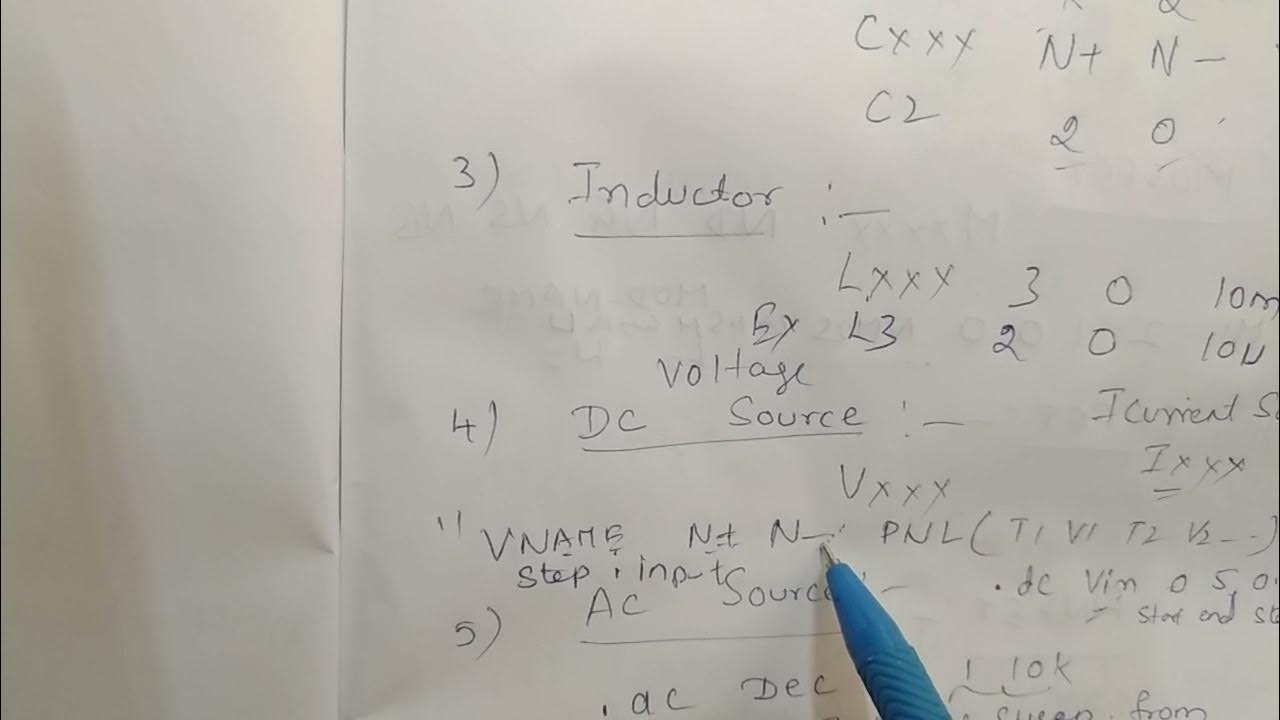 2
Cxxx N+ N-
C2 2 0
3) Inductor :-
Lxxx 3 0 10m
Ex L3 2 0 10u
Voltage
4) DC Source :- I current S
Vxxx Ixxx
VNAME N+ N- PNL(T1 V1 T2 V2--)
step input
.dc Vin 0 5 0.
start end st
5) AC Source :-
.ac Dec 1 10k
sweep from